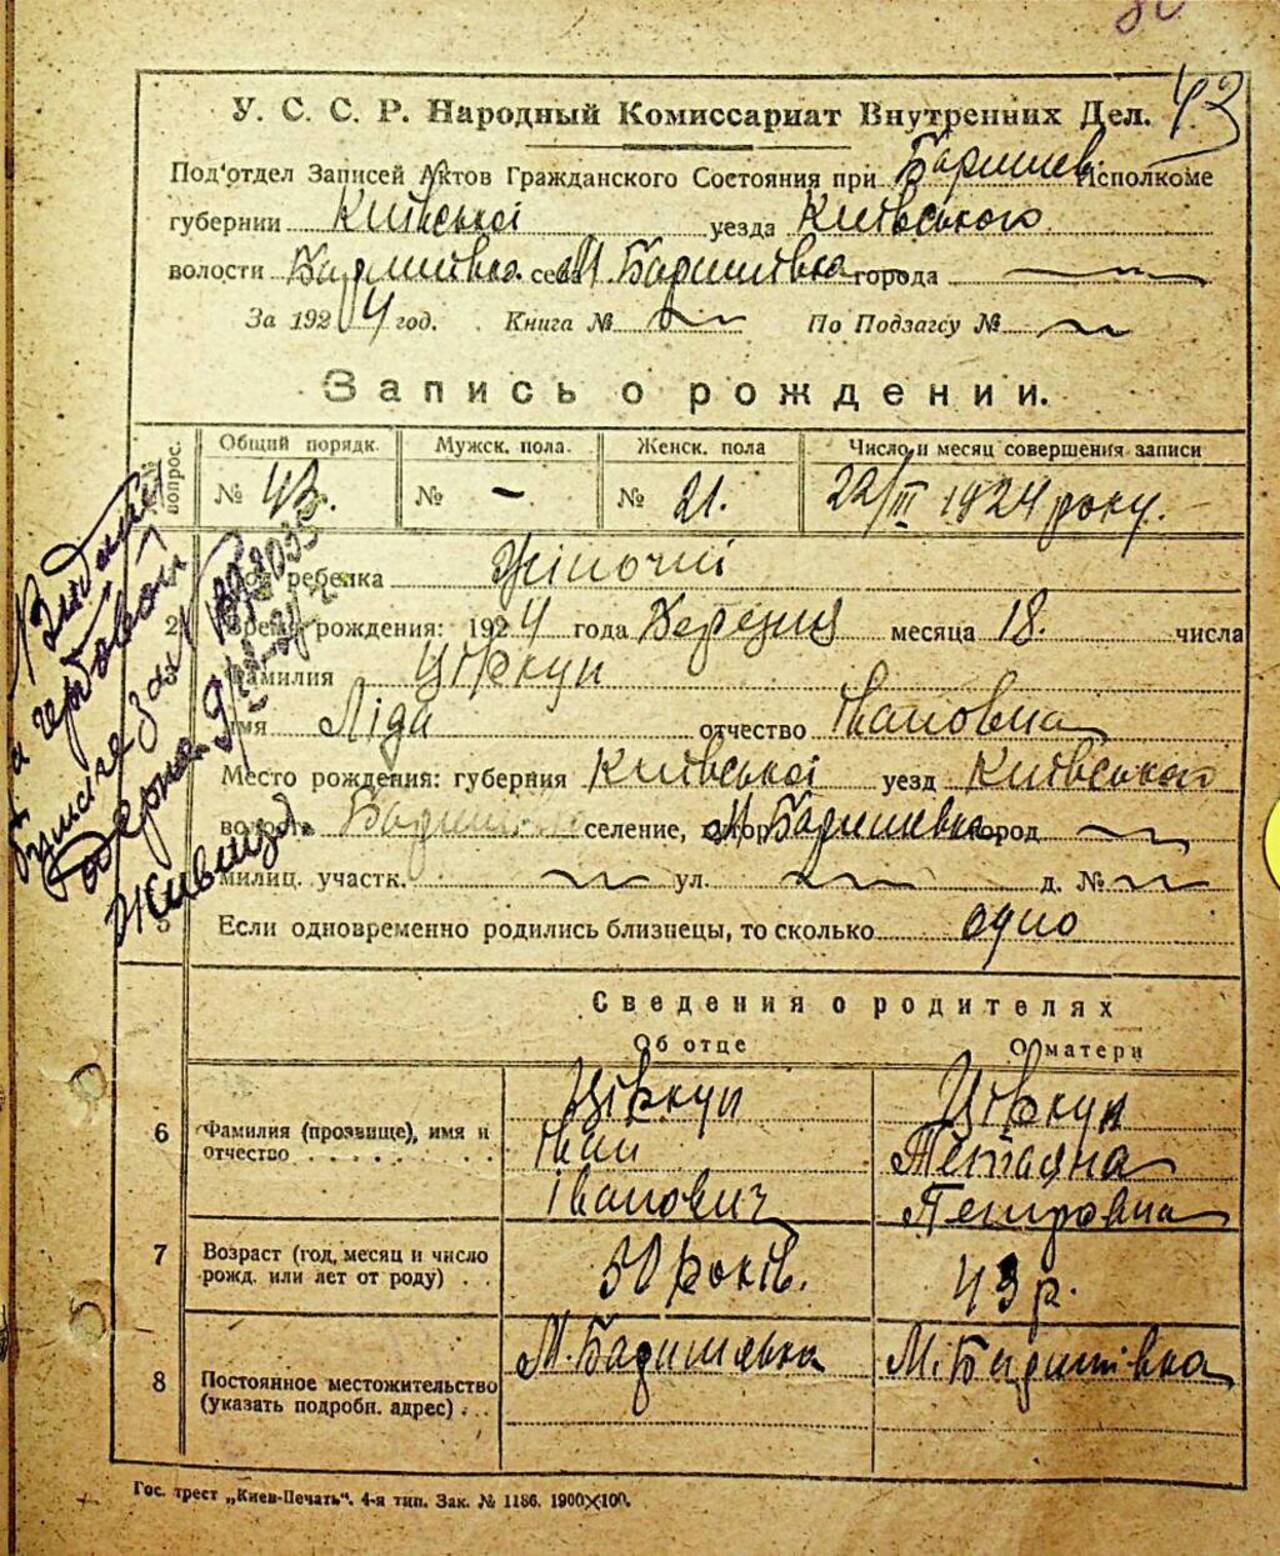 43
У. С. С. Р. Народный Комиссариат Внутренних Дел.
Под'отдел Записей Актов Гражданского Состояния при Баришев. Исполкоме
губернии Київської уезда Київського
волости Баришівка села М. Баришівка города
За 1924 год. Книга № По Подзагсу №
Запись о рождении.
№ вопрос. Общий порядк. Мужск. пола. Женск. пола Число и месяц совершения записи
№ 43. № — № 21. 22/III 1924 року.
Пол ребенка Жіночий
2 Время рождения: 1924 года Березня месяца 18. числа
3 Фамилия Цівкун
Имя Ліда отчество Івановна
Место рождения: губерния Київської уезд Київського
волость селение, М. Баришевка город
милиц. участк. ул. д. №
5 Если одновременно родились близнецы, то сколько одно
Сведения о родителях
Об отце О матери
6 Фамилия (прозвище), имя и отчество
Цівкун
Іван
Іванович
Цівкун
Тетьяна
Петровна
7 Возраст (год, месяц и число рожд. или лет от роду)
50 років.
43 р.
8 Постоянное местожительство (указать подробн. адрес)
М. Баришевка
М. Баришівка
Гос. трест „Киев-Печать“. 4-я тип. Зак. № 1186. 1900×100.